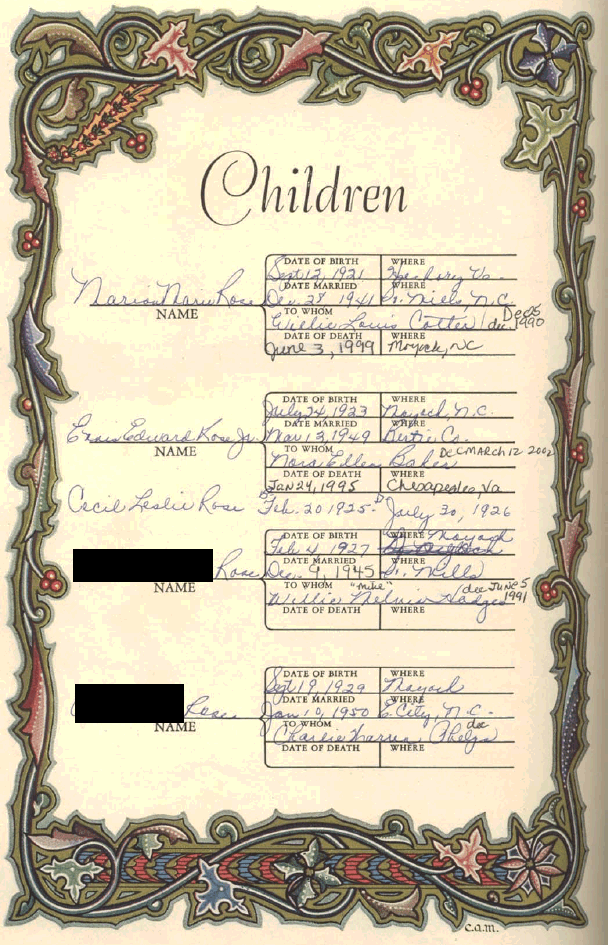 Children
DATE OF BIRTH WHERE
Sept 12, 1921 Va.
DATE MARRIED WHERE
Marion Marie Rose Dec. 28 1941 N.C.
NAME
TO WHOM
Willie Louis Cotter dec. Dec 25 1990
DATE OF DEATH WHERE
June 3, 1999 Moyock, NC
DATE OF BIRTH WHERE
July 24, 1923 Moyock, N.C.
DATE MARRIED WHERE
Edward Rose Jr. Mar 12, 1949 Bertie Co.
NAME
TO WHOM
Nora Ellen Baker DEC MARCH 12 2002
DATE OF DEATH WHERE
JAN 24, 1995 Chesapeake, Va
Cecil Leslie Rose B- Feb. 20 1925- D July 30, 1926
DATE OF BIRTH WHERE
Feb 4, 1927 Moyock
DATE MARRIED WHERE
Rose Dec. 9, 1945 Mills
NAME
TO WHOM "mike"
Willie Melvin Hodges dec JUNE 5 1991
DATE OF DEATH WHERE
DATE OF BIRTH WHERE
Sept 19, 1929 Moyock
DATE MARRIED WHERE
Rose Jan 10, 1950 E. City, N.C.
NAME
TO WHOM
Charlie Warren Phelps dec
DATE OF DEATH WHERE
c.a.m.